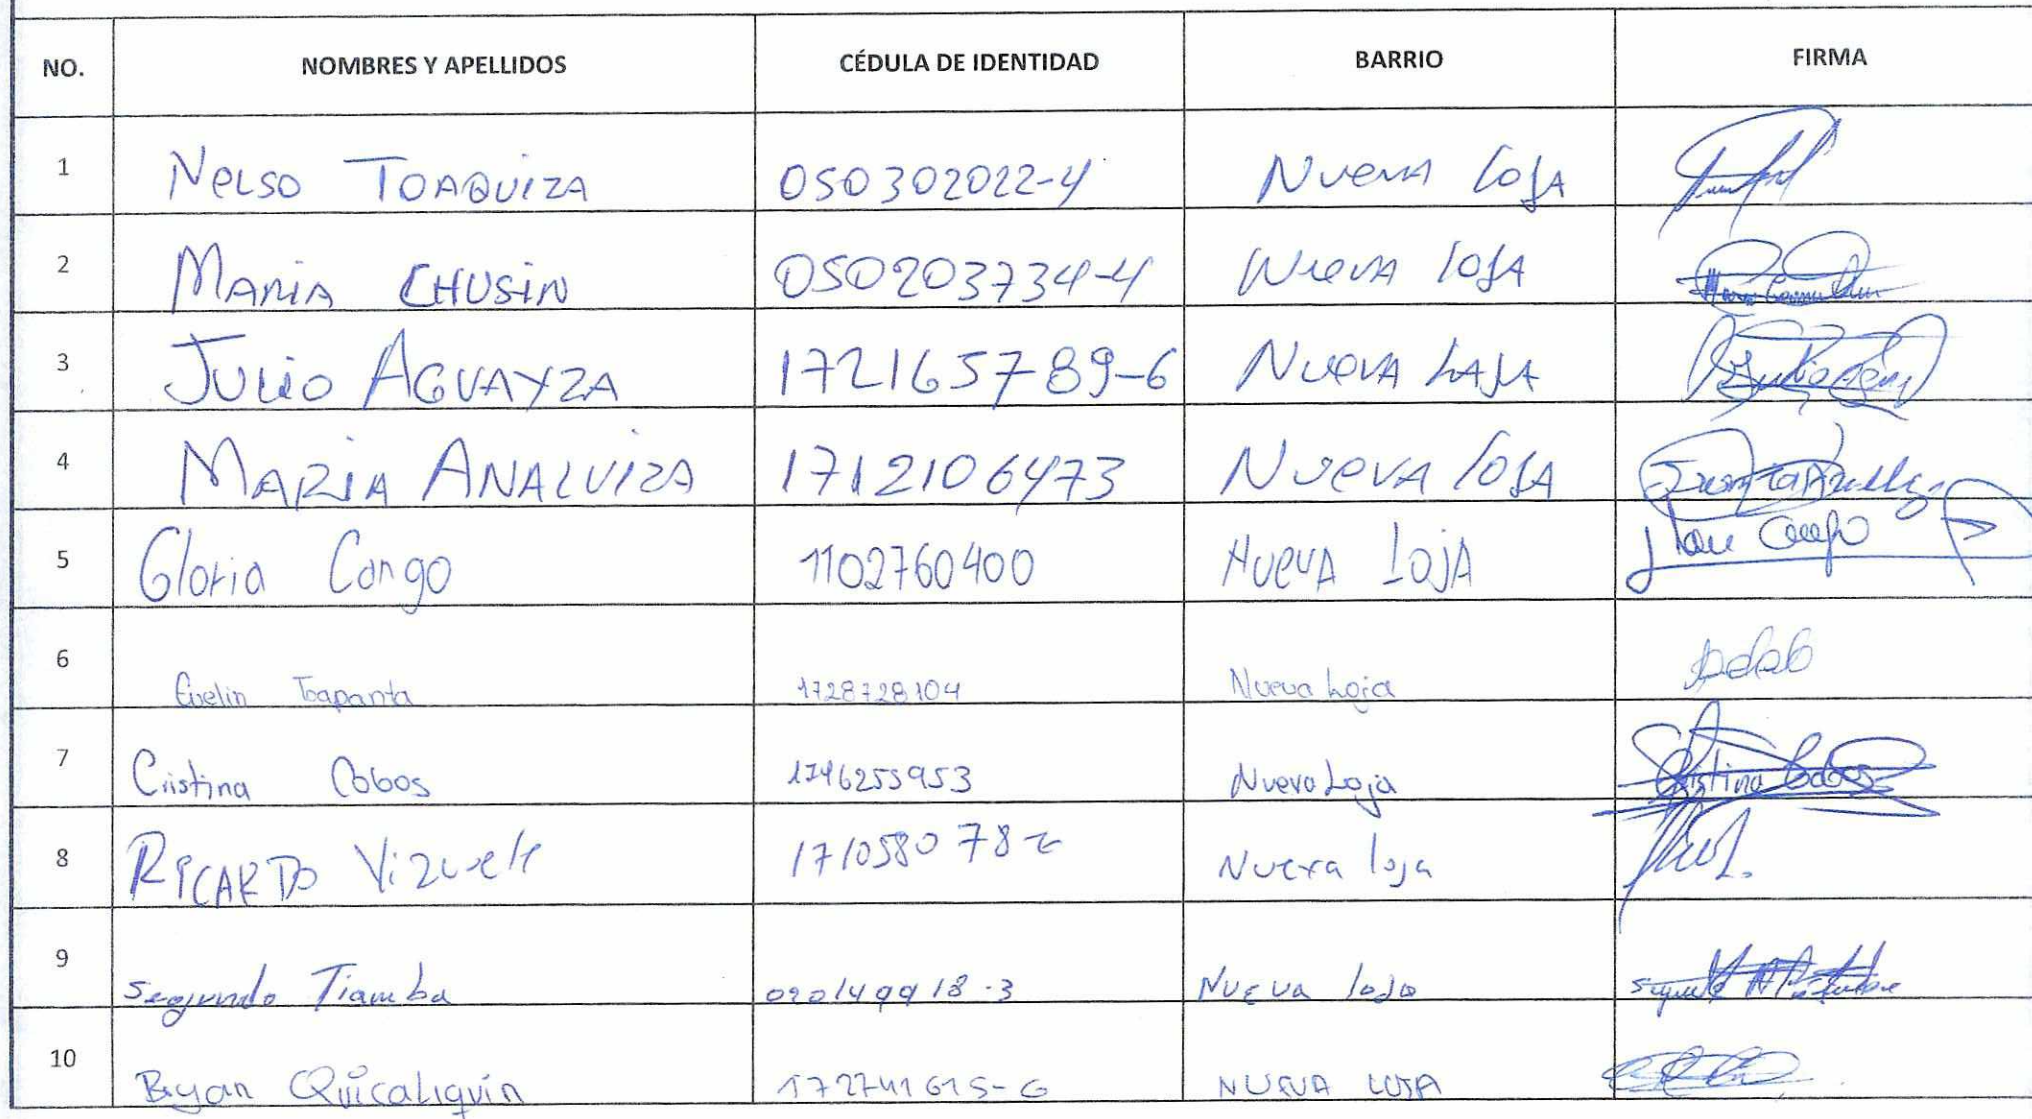 NO. NOMBRES Y APELLIDOS CÉDULA DE IDENTIDAD BARRIO FIRMA
1 Nelso TOAQUIZA 050302022-4 Nueva LOJA
2 MARIA CHUSIN 050203734-4 Nueva LOJA
3 JULIO AGUAYZA 172165789-6 NUEVA LAJA
4 MARIA ANALUIZA 1712106473 NUEVA LOJA
5 Gloria Congo 1102760400 NUEVA LOJA
6 Evelin Toapanta 1728728104 Nueva Loja
7 Cristina Cobos 1746255953 Nueva Loja Cristina Cobos
8 RICARDO Vizuete 1710580782 Nueva loja
9 Segundo Tiamba 020149918-3 Nueva loja
10 Bryan Quicaliquin 172741615-6 NUEVA LOJA